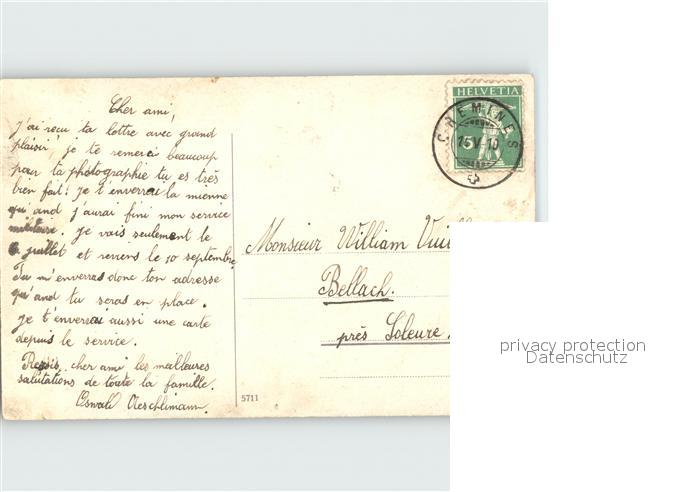 Cher ami,
j'ai reçu ta lettre avec grand
plaisir, je te remerci beaucoup
pour ta photographie tu es très
bien fait! Je t'enverrai la mienne
qu'and j'aurai fini mon service
militaire. Je vais seulement le
juillet et reviens le 10 septembre.
Tu m'enverras donc ton adresse
qu'and tu seras en place.
Je t'enverrai aussi une carte
depuis le service.
cher ami les meilleures
salutations de toute la famille.
Oswald Aeschlimann.
HELVETIA
CRÉMINES
15 V 10
5
Monsieur William
Bellach.
près Soleure
5711
privacy protection
Datenschutz